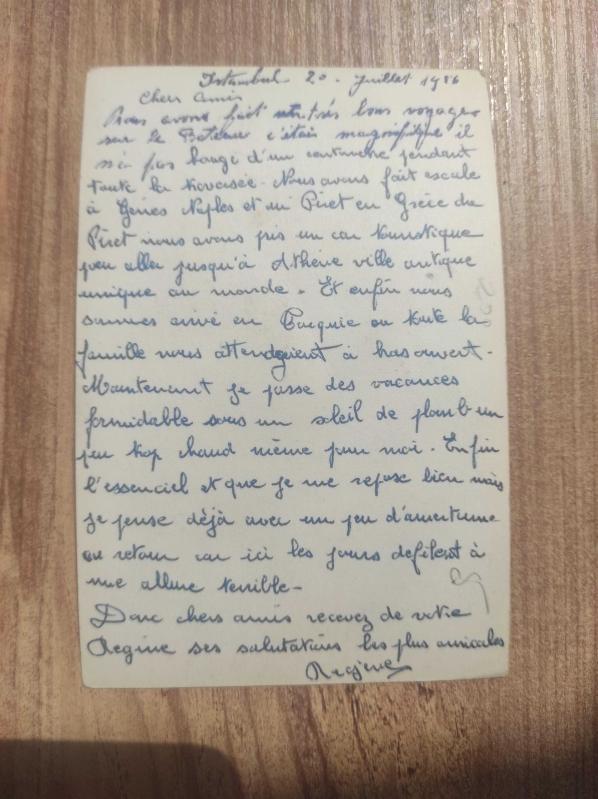 Istambul 20 - juillet 1956
Cher amis
Nous avons fait un très bons voyage
sur le Bateau c'étais magnifique il
n'a pas bougé d'un centimetre pendant
toute la traversée. Nous avons fait escale
à Gènes Naples et au Piret en Grèce du
Piret nous avons pis un car touristique
pou aller jusqu'à Athène ville antique
unique au monde. Et enfin nous
sommes arivé en Turquie ou toute la
famille nous attendaient à bras ouvert.
Maintenant je passe des vacances
formidable sous un soleil de plomb un
peu trop chaud même pour moi. Enfin
l'essenciel et que je me repose bien mais
je pense déjà avec un peu d'amertume
au retour car ici les jours defilent à
une allure terrible -
Donc chers amis recevez de votre
Regine ses salutations les plus amicales
Regine